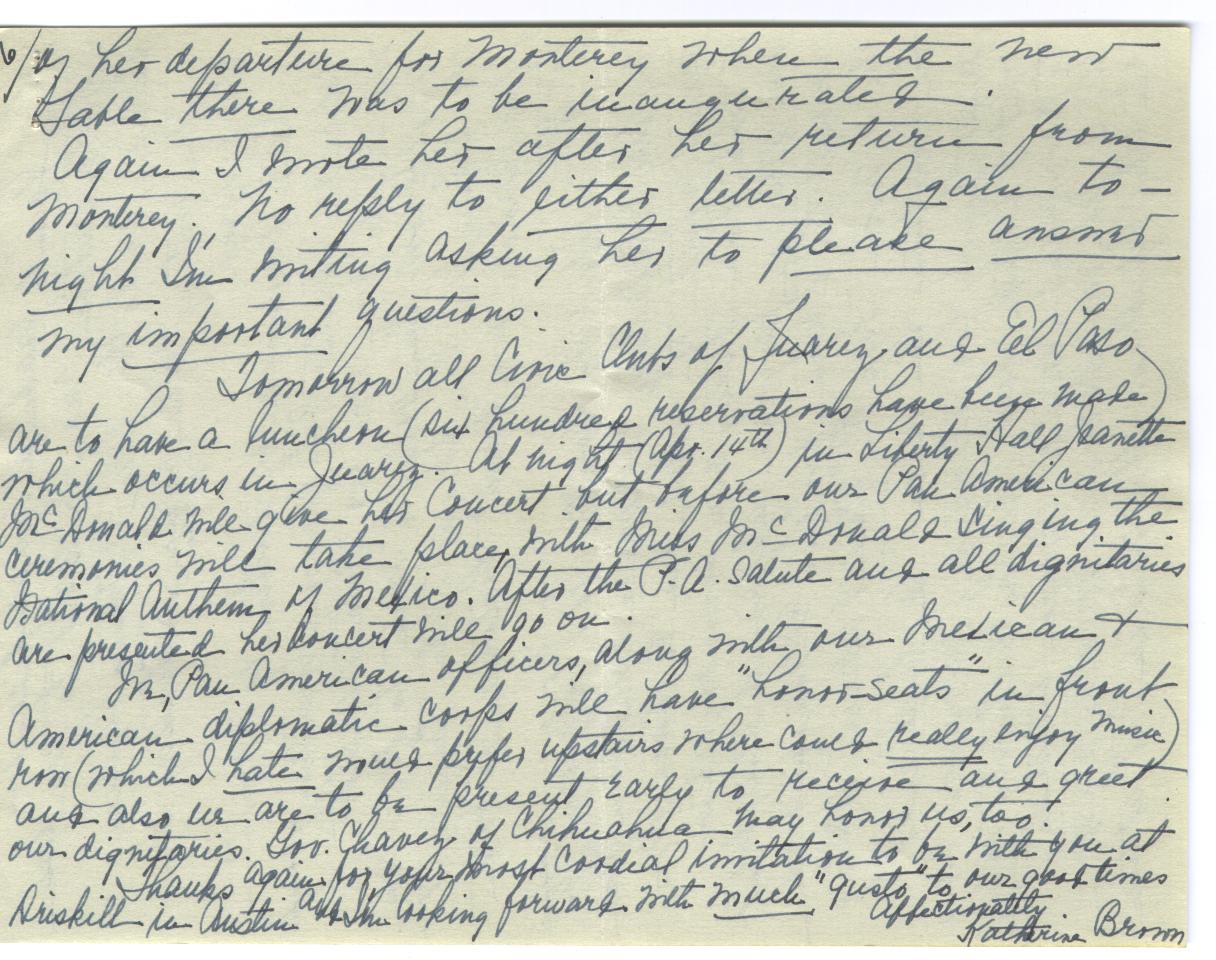 6/ of her departure for Monterey when the new
Table there was to be inaugurated.
Again I wrote her after her return from
Monterey. No reply to either letter. Again to-
night I'm writing asking her to please answer
my important questions.
Tomorrow all Civic Clubs of Juarez and El Paso
are to have a luncheon (six hundred reservations have been made)
which occurs in Juarez. At night (Apr. 14th) in Liberty Hall Jeanette
McDonald will give her Concert but before our Pan American
ceremonies will take place, with Miss McDonald singing the
National Anthem of Mexico. After the P.A. Salute and all dignitaries
are presented her Concert will go on.
We, Pan American officers, along with our Mexican +
American diplomatic corps will have "honor-seats" in front
row (which I hate would prefer upstairs where could really enjoy music)
and also we are to be present early to receive and greet
our dignitaries. Gov. Chavez of Chihuahua may honor us, too.
Thanks again for your most cordial invitation to be with you at
Driskill in Austin and I'm looking forward with much "gusto" to our good times
Affectionately
Katherine Brown